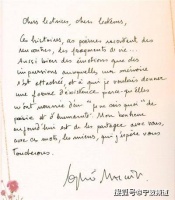 Chers lectrices, chers lecteurs,
Ces histoires, ces poèmes racontent des
rencontres, des fragments de vie...
Aussi bien des émotions que des
impressions auxquelles ma mémoire
s'est attachée, et à qui je voulais donner
une forme d'existence parce qu'elles
m'ont nourrie d'un "je ne sais quoi" de
poésie et d'humanité. Mon bonheur
aujourd'hui est de les partager avec vous,
avec ces mots, les miens, qui j'espère vous
toucheront.
搜狐号@宁波频道